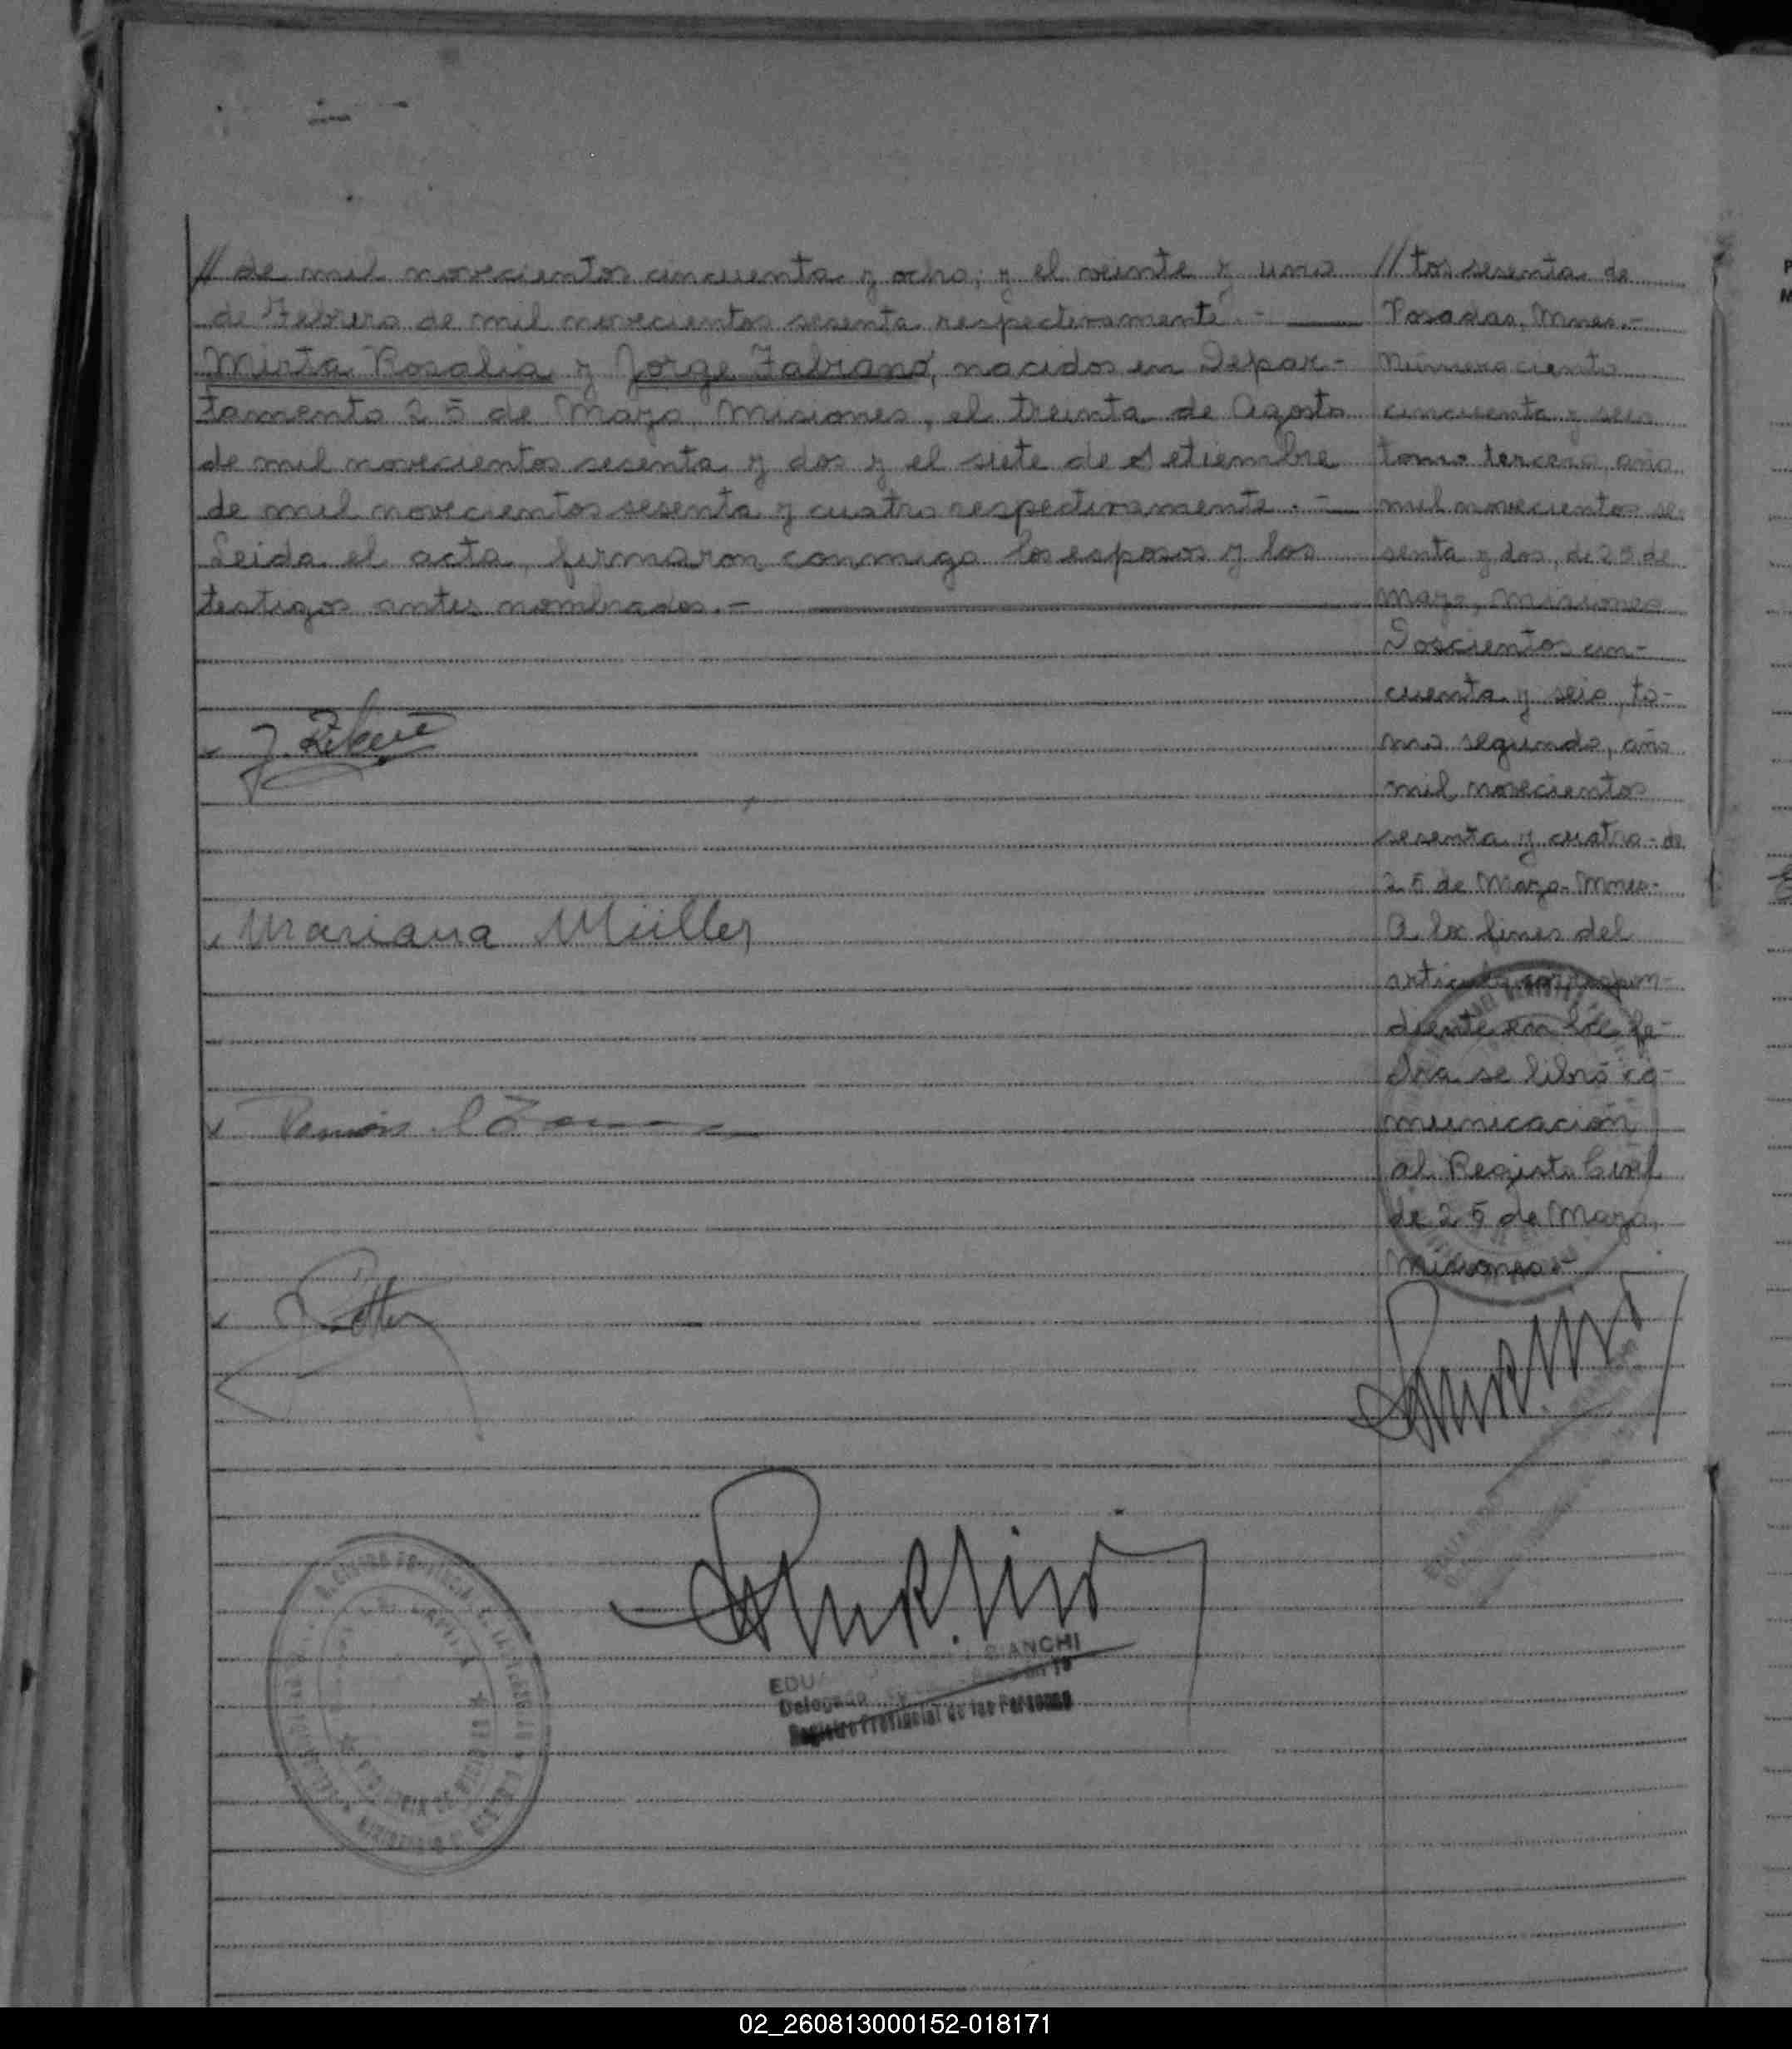 // de mil novecientos cincuenta y ocho; y el veinte y uno
de Febrero de mil novecientos sesenta respectivamente.-
Mirta Rosalia y Jorge Fabiano, nacidos en Depar-
tamento 25 de Mayo, Misiones, el treinta de Agosto
de mil novecientos sesenta y dos y el siete de Setiembre
de mil novecientos sesenta y cuatro respectivamente.-
Leida el acta, firmaron conmigo los esposos y los
testigos antes nombrados.-
Mariana Müller
Ramón
// tos sesenta de
Posadas, Mnes.-
Número ciento
cincuenta y seis
tomo tercero, año
mil novecientos se-
senta y dos, de 25 de
Mayo, Misiones
Doscientos cin-
cuenta y seis, to-
mo segundo, año
mil novecientos
sesenta y cuatro- de
25 de Mayo- Mnes-
A los fines del
articulo correspon-
diente en la fe-
cha se libró co-
municación
al Registro Civil
de 25 de Mayo,
Misiones.-
EDUA BIANCHI
Delegado
Registro Provincial de las Personas
02_260813000152-018171